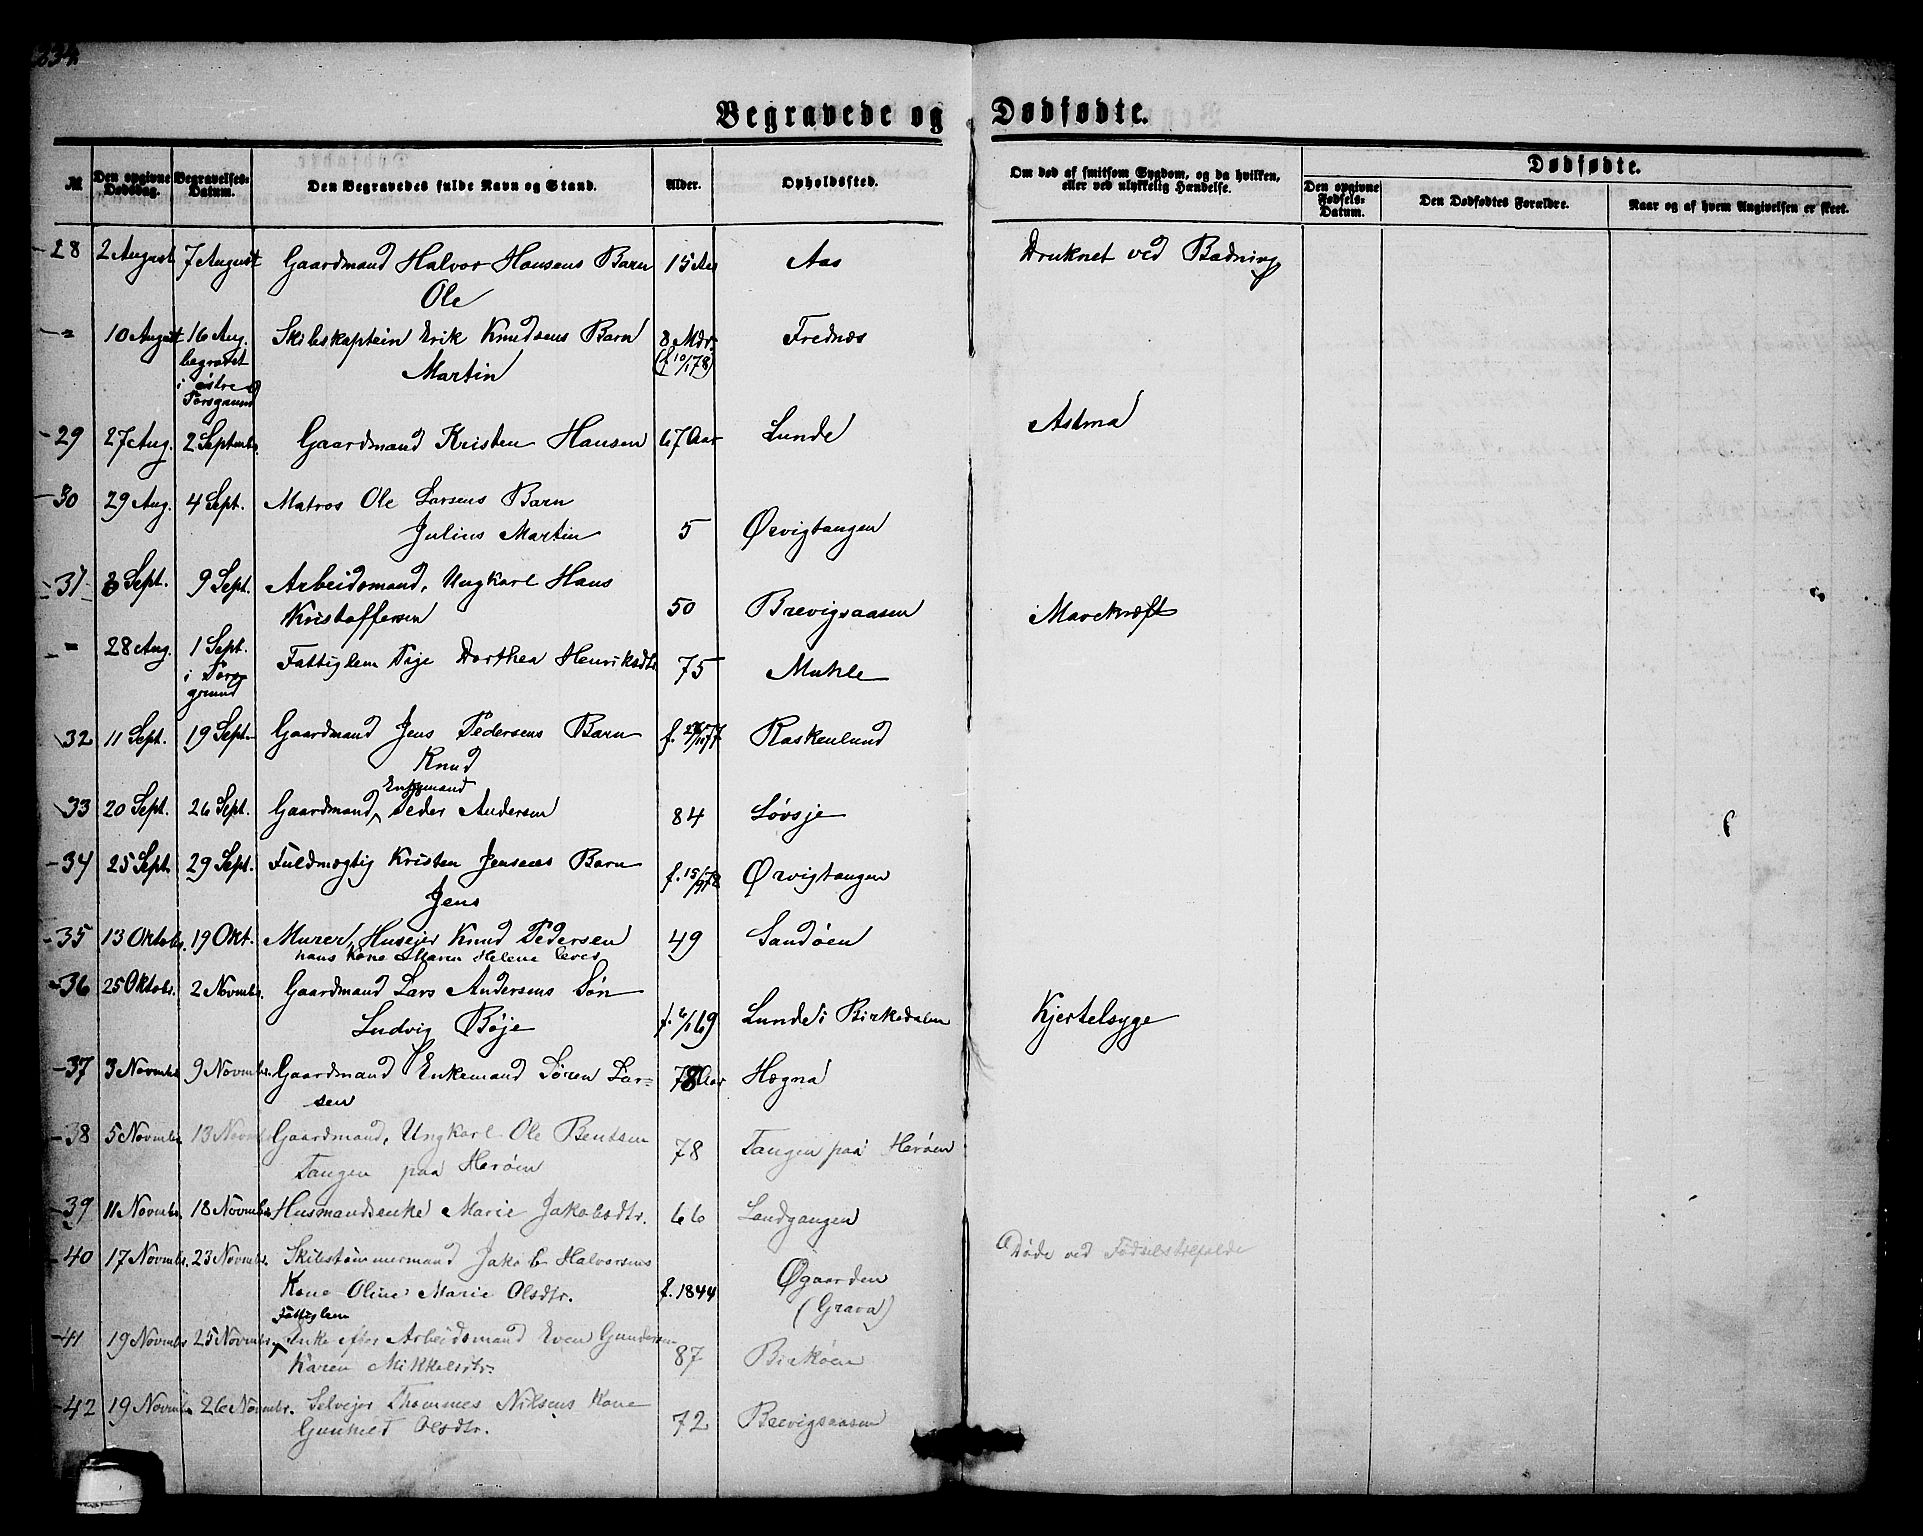 334
Begravede og Dødfødte.
№
Den opgivne Dødsdag.
Begravelses-Datum.
Den Begravedes fulde Navn og Stand.
Alder.
Opholdssted.
Om død af smitsom Sygdom, og da hvilken,
eller ved ulykkelig Hændelse.
Dødfødte.
Den opgivne Fødsels-Datum.
Den Dødfødtes Forældre.
Naar og af hvem Angivelsen er skeet.
28 2 August 7 August Gaardmand Halvor Hansens Barn 15 Aar Aas Druknet ved Badning
Ole
= 10 August 16 Aug. Skibskaptein Erik Knudsens Barn 8 Mdr. Frednæs
begravet Martin (f 10/1 78)
i østre
Porsgrund
29 27 Aug. 2 Septembr. Gaardmand Kristen Hansen 67 Aar Lunde Astma
30 29 Aug. 4 Sept. Matros Ole Larsens Barn
Julius Martin 5 Ørvigtangen
31 3 Sept. 9 Sept. Arbeidsmand, Ungkarl Hans
Kristoffersen 50 Brevigsaasen Mavekræft
= 28 Aug. 1 Sept. Fattiglem Pige Dorthea Henriksdtr. 75 Muhle
i Pors-
grund
32 11 Sept. 19 Sept. Gaardmand Jens Pedersens Barn f. 77 Raskenlund
Knud
Enkemand
33 20 Sept. 26 Sept. Gaardmand, Peder Andersen 84 Løvsje
34 25 Sept. 29 Sept. Fuldmægtig Kristen Jensens Barn f. 15/9 78 Ørvigtangen
Jens
35 13 Oktobr. 19 Okt. Murer, Husejer Knud Pedersen 49 Sandøen
hans Kone Maren Helene lever
36 25 Oktobr. 2 Novmbr. Gaardmand Lars Andersens Søn
Ludvig Bøje f. 6/1 69 Lunde i Birkedalen Kjertelsyge
37 3 Novmbr. 9 Novmbr. Gaardmand Enkemand Søren Lar- 78 Aar Høgna
sen
38 5 Novmbr. 13 Novmbr. Gaardmand, Ungkarl Ole Bentsen 78 Tangen paa Herøen
Tangen paa Herøen
39 11 Novmbr. 18 Novmbr. Husmandsenke Marie Jakobsdtr. 66 Landgangen
40 17 Novmbr. 23 Novmbr. Skibstømmermand Jakob Halvorsens Døde ved Fødselstilfælde
Kone Oline Marie Olsdtr. f. 1844 Øgaarden
(Grava)
Fattiglem
41 19 Novmbr. 25 Novmbr. Enke efter Arbeidsmand Even Gundersen
Karen Mikkelsdtr. 87 Birkøen
42 19 Novmbr. 26 Novmbr. Selvejer Thommes Nilsens Kone
Gunhild Olsdtr. 72 Brevigsaasen